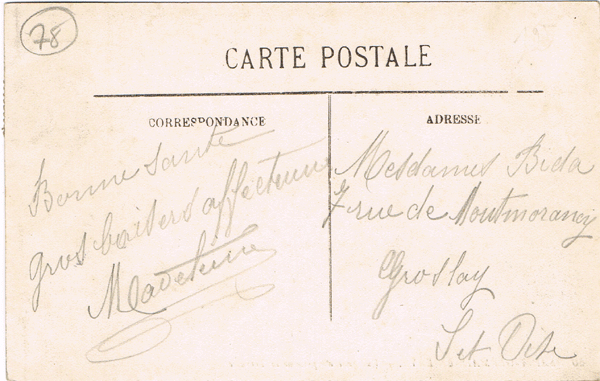 78
CARTE POSTALE
CORRESPONDANCE
Bonne santé
gros baisers affectueux
Madeleine
ADRESSE
Mesdames Bida
7 rue de Montmorency
Groslay
S et Oise